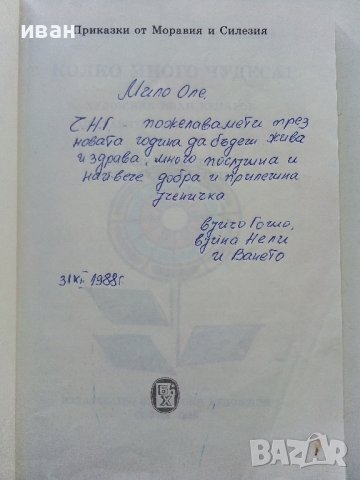 иван
Приказки от Моравия и Силезия
Мило Оле,
Ч.Н.Г. пожелавамети през
новата година да бъдеш жива
и здрава, много послушна и
най вече добра и прилежна
ученичка
вуйчо Гошо,
вуйна Нели
и Ването
31 XII 1988г.
БХ
BAZAR
bg